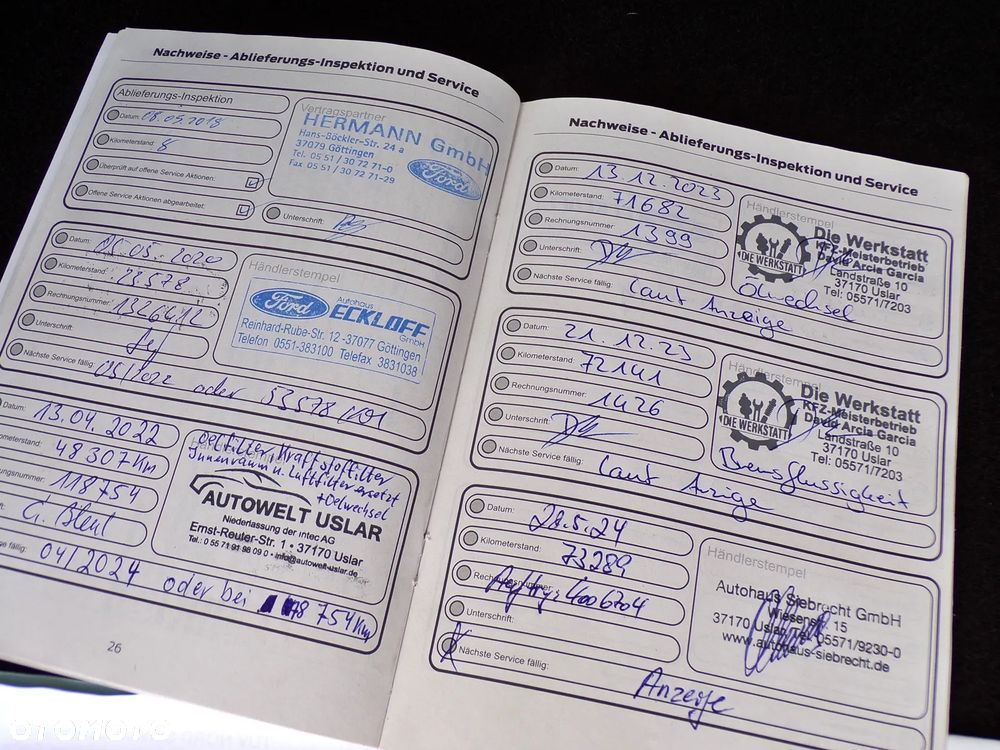 Nachweise - Ablieferungs-Inspektion und Service
Ablieferungs-Inspektion
Datum: 08.05.2018
Kilometerstand: 8
Überprüft auf offene Service Aktionen:
Offene Service Aktionen abgearbeitet:
Unterschrift:
Vertragspartner
HERMANN GmbH
Hans-Böckler-Str. 24 a
37079 Göttingen
Tel. 05 51 / 30 72 71-0
Fax 05 51 / 30 72 71-29
Ford
Datum: 05.2020
Kilometerstand: 23578
Rechnungsnummer: 1326412
Unterschrift:
Nächste Service fällig: 05/2022 oder 53578 km
Händlerstempel
Ford
Autohaus
ECKLOFF
GmbH
Reinhard-Rube-Str. 12 - 37077 Göttingen
Telefon 0551-383100 Telefax 3831038
Datum: 13.04.2022
ometerstand: 48307 Km
ungsnummer: 118754
ge fällig: 04/2024 oder bei 78 754 Km
Oelfilter, Kraftstoffilter
Innenraum u. Luftfilter ersetzt
+ Oelwechsel
AUTOWELT USLAR
Niederlassung der intec AG
Ernst-Reuter-Str. 1 • 37170 Uslar
Tel.: 0 55 71 91 98 09 0 • info@autowelt-uslar.de
26
Nachweise - Ablieferungs-Inspektion und Service
Datum: 13.12.2023
Kilometerstand: 71682
Rechnungsnummer: 1399
Unterschrift:
Nächste Service fällig: laut Anzeige
Händlerstempel
DIE WERKSTATT
Die Werkstatt
KFZ-Meisterbetrieb
David Arcia Garcia
Landstraße 10
37170 Uslar
Tel: 05571/7203
Ölwechsel
Datum: 21.12.23
Kilometerstand: 72141
Rechnungsnummer: 1426
Unterschrift:
Nächste Service fällig: laut Anzige
Händlerstempel
DIE WERKSTATT
Die Werkstatt
KFZ-Meisterbetrieb
David Arcia Garcia
Landstraße 10
37170 Uslar
Tel: 05571/7203
Bremsflüssigkeit
Datum: 28.5.24
Kilometerstand: 73289
Rechnungsnummer: 4006704
Unterschrift:
Nächste Service fällig: Anzeige
Händlerstempel
Autohaus Siebrecht GmbH
Wiesenstr. 15
37170 Uslar, Tel. 05571/9230-0
www.autohaus-siebrecht.de
OTOMOTO